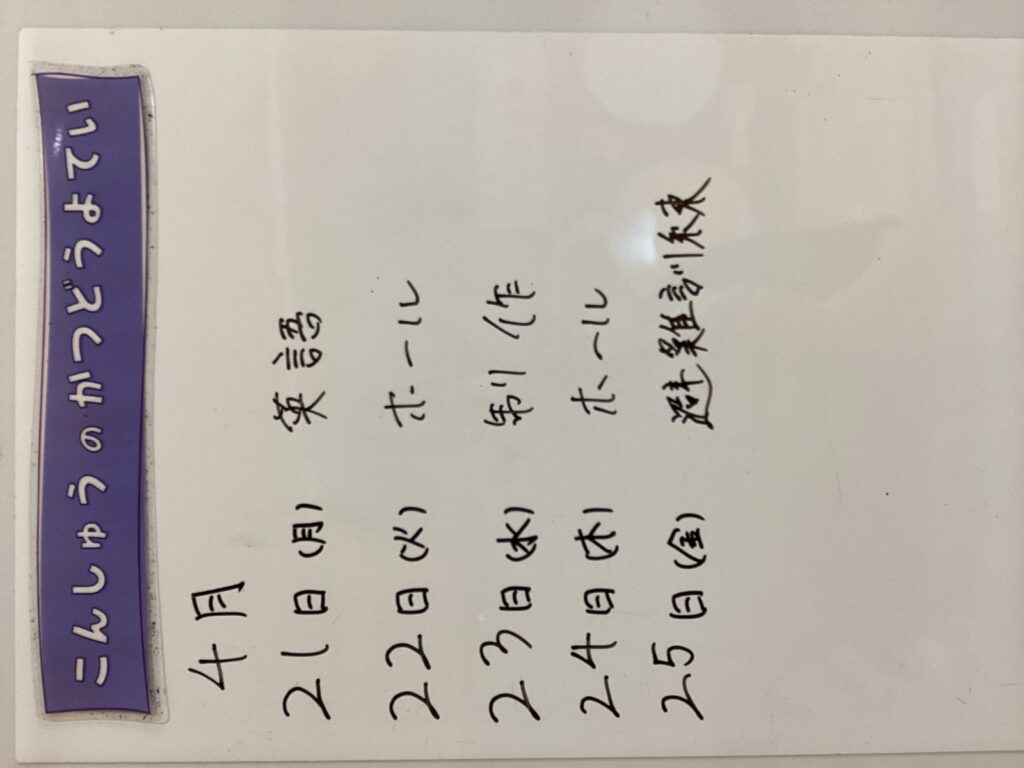 こんしゅうのかつどうよてい
4月
21日(月) 英語
22日(火) ホール
23日(水) 制作
24日(木) ホール
25日(金) 避難訓練